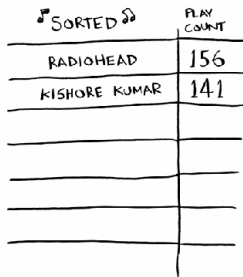 SORTED
PLAY
COUNT
RADIOHEAD 156
KISHORE KUMAR 141